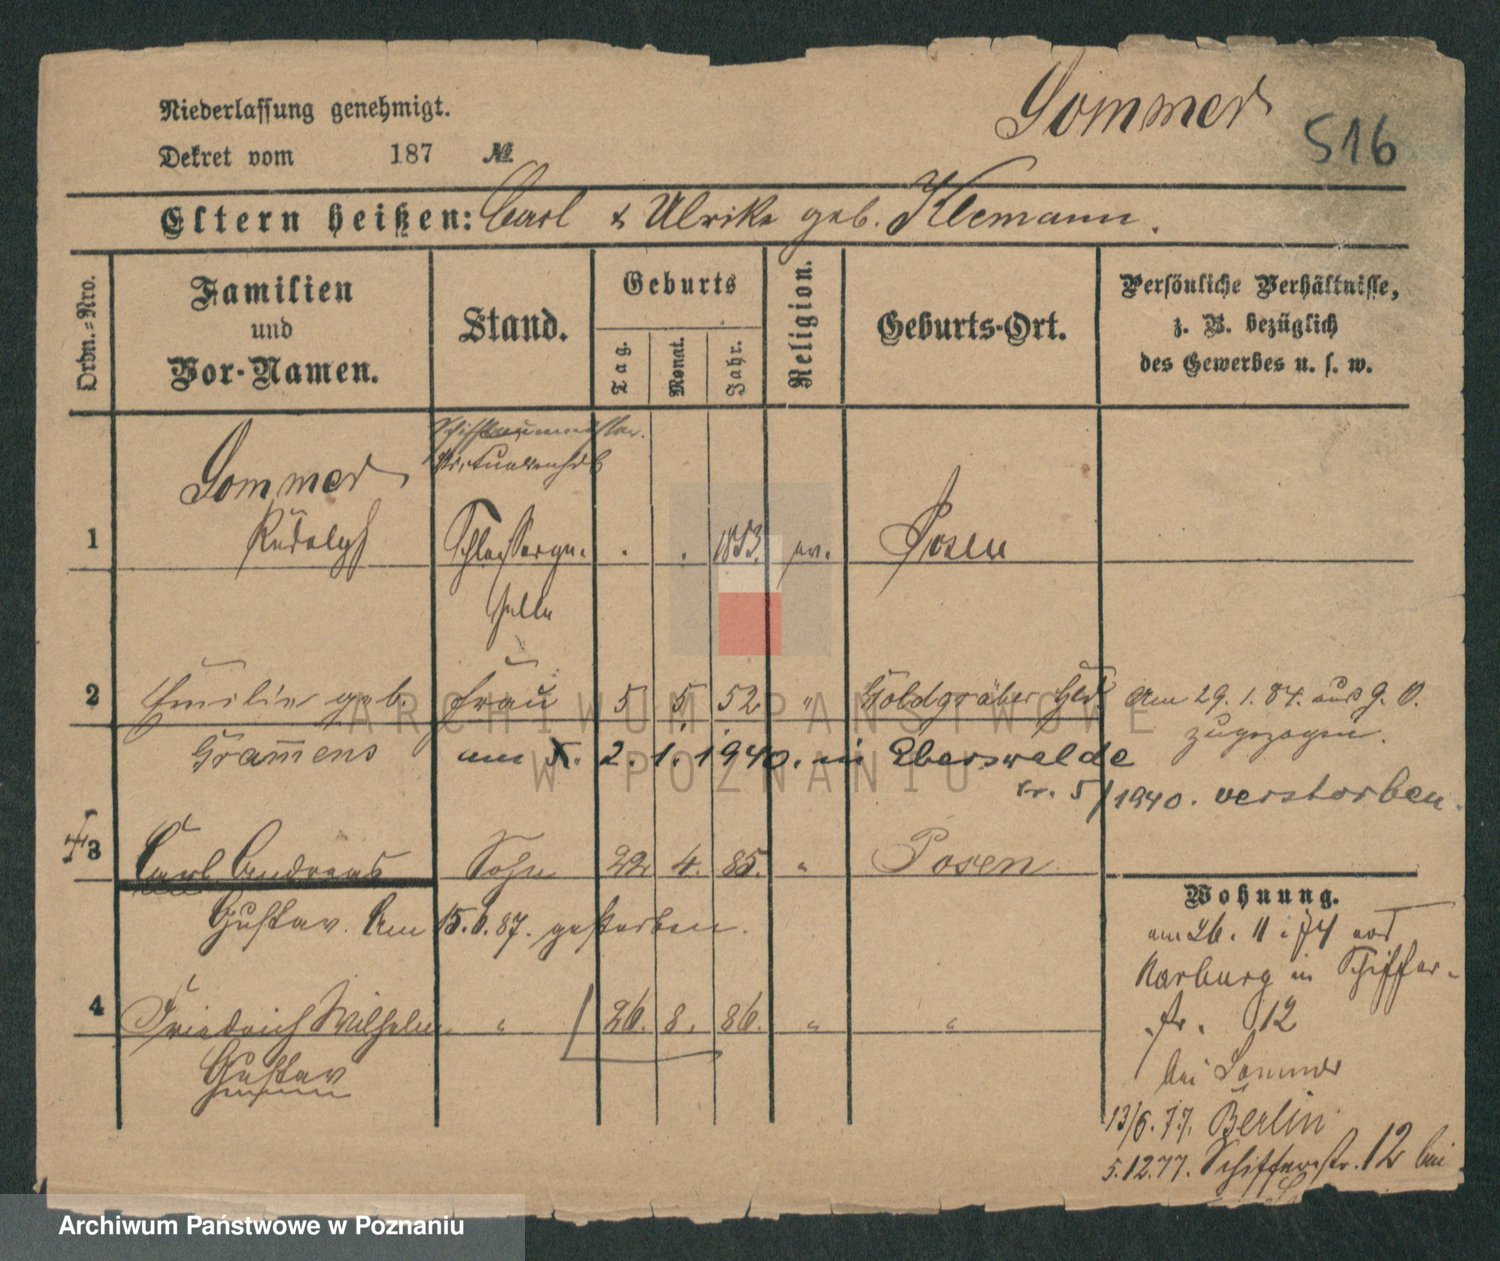 Niederlassung genehmigt.
Sommer
516
Dekret vom 187 №
Eltern heißen: Carl & Ulrike geb. Klemann.
Ordn.=Nro.
Familien und Vor-Namen.
Stand.
Geburts
Tag.
Monat.
Jahr.
Religion.
Geburts-Ort.
Persönliche Verhältnisse,
z. B. bezüglich
des Gewerbes u. s. w.
Sommer
1 Rudolph Schlosserge- . . 1853. ev. Posen
selle
2 Emilie geb. Frau 5 5. 52 " Goldgräber Hld Am 29. 1. 84. aus g. O.
zugezogen.
Gramens am 2. 1. 1940. in Eberswalde
5/1940. verstorben.
3 Carl Andreas Sohn 22 4. 85. " Posen
Gustav. Am 15. 6. 87. gestorben.
4 Friedrich Wilhelm " 26. 8. 86. " "
Gustav
Wohnung.
am 26. 11. 74 aus
Harburg in Schiffer-
str. 12
bei Sommer
13/6. 77. Berlin
5.12.77. Schifferstr. 12 bei
ARCHIWUM PAŃSTWOWE
W POZNANIU
Archiwum Państwowe w Poznaniu